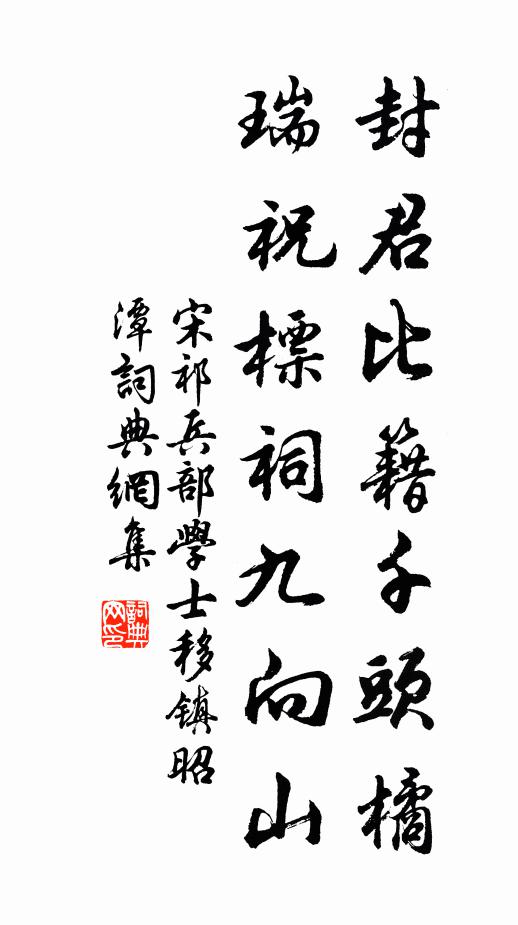 封君比籍千頭橘
瑞祝標祠九向山
宋祁兵部學士移鎮昭
潭詞典網集
詞典
网印